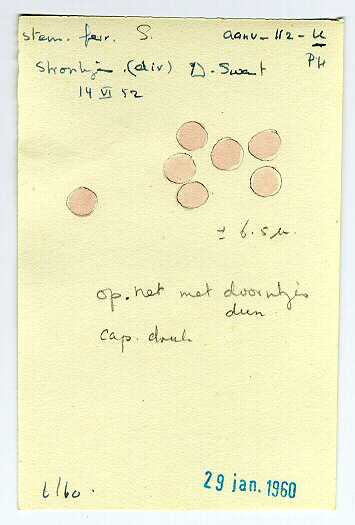 stem. ferr. S. aanv-112-U
PH
(div) D. Swart
14 VI 52
± 6.5µ.
op. net met doorntjes
dun
cap. druk
6/60.
29 jan. 1960